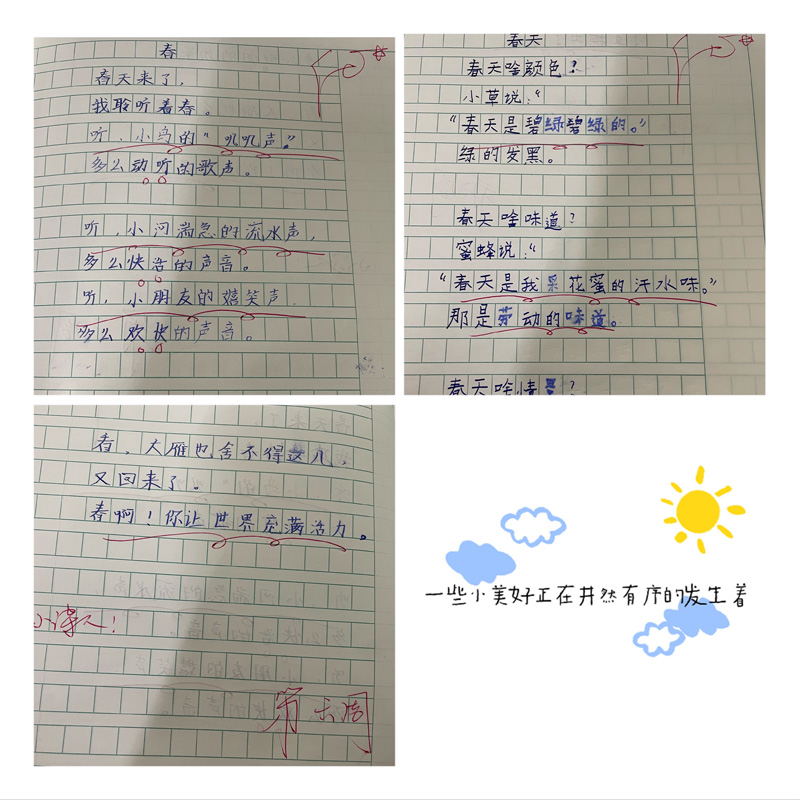 春
春天来了，
我聆听着春。
听，小鸟的“叽叽声”。
多么动听的歌声。
听，小河湍急的流水声，
多么快活的声音。
听，小朋友的嬉笑声，
多么欢快的声音。
春天
春天啥颜色？
小草说：“
“春天是碧绿碧绿的。”
绿的发黑。
春天啥味道？
蜜蜂说：“
“春天是我采花蜜的汗水味。”
那是劳动的味道。
春天啥情景？
看，大雁也舍不得这儿，
又回来了。
春啊！你让世界充满活力。
小诗人！
第六周
一些小美好正在井然有序的发生着